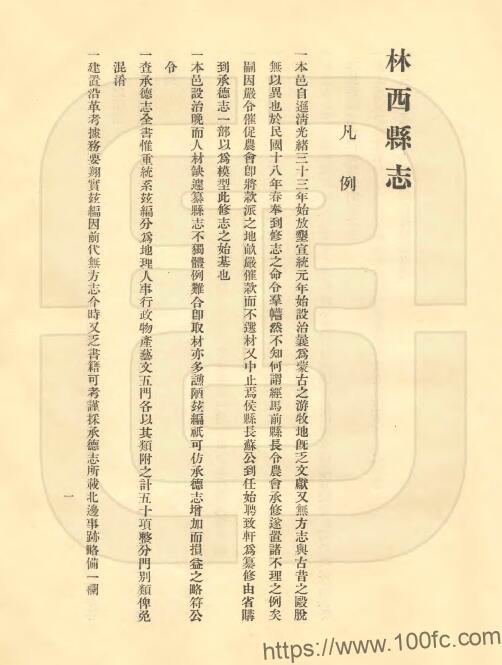 林西縣志
凡例
一本邑自遜清光緒三十三年始放墾宣統元年始設治曩爲蒙古之游牧地旣乏文獻又無方志與古昔之毆脫
無以異也於民國十八年春奉到修志之命令羣懵然不知何謂經馬前縣長令農會承修遂置諸不理之例矣
嗣因嚴令催促農會卽將款派之地畝嚴催款而不選材又中止焉侯縣長蘇公到任始聘致軒爲纂修由省購
到承德志一部以爲模型此修志之始基也
一本邑設治晚而人材缺遽纂縣志不獨體例難合卽取材亦多謭陋玆編祇可仿承德志增加而損益之略符公
令
一查承德志全書惟重統系玆編分爲地理人事行政物產藝文五門各以其類附之計五十項整分門別類俾免
混淆
一建置沿革考據務要翔實玆編因前代無方志今時又乏書籍可考謹採承德志所載北邊事跡略備一欄
一
https://www.100fc.com